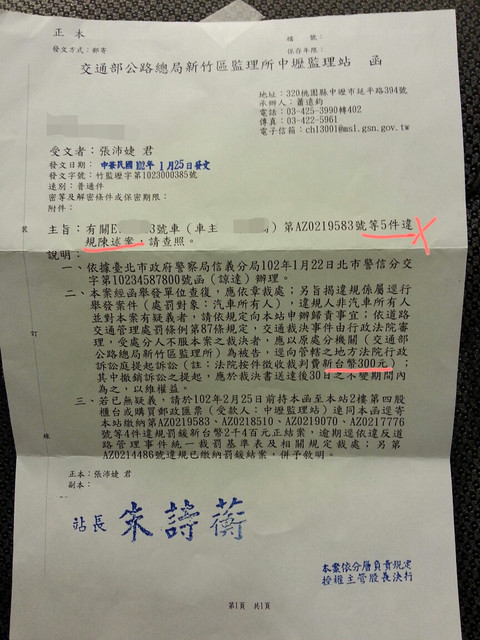 正本
檔　號：
發文方式：郵寄
保存年限：
交通部公路總局新竹區監理所中壢監理站　函
地址：320桃園縣中壢市延平路394號
承辦人：蕭遠鈞
電話：03-425-3990轉402
傳真：03-422-5961
電子信箱：ch13001@ms1.gsn.gov.tw
受文者：張沛婕 君
發文日期：中華民國102年1月25日發文
發文字號：竹監壢字第1023000385號
速別：普通件
密等及解密條件或保密期限：
附件：
主旨：有關E 3號車（車主 局）第AZ0219583號等5件違
規陳述案，請查照。
說明：
一、依據臺北市政府警察局信義分局102年1月22日北市警信分交
字第10234587800號函（諒達）辦理。
二、本案經函舉發單位查復，應依章裁處；另旨揭違規係屬逕行
舉發案件（處罰對象：汽車所有人），違規人非汽車所有人
並對本案有疑義者，請依規定向本站申辦歸責事宜；依道路
交通管理處罰條例第87條規定，交通裁決事件由行政法院審
理，受處分人不服本案之裁決者，應以原處分機關（交通部
公路總局新竹區監理所）為被告，逕向管轄之地方法院行政
訴訟庭提起訴訟（註：法院按件徵收裁判費新台幣300元）；
其中撤銷訴訟之提起，應於裁決書送達後30日之不變期間內
為之，以維權益。
三、若已無疑義，請於102年2月25日前持本函至本站2樓第四股
櫃台或購買郵政匯票（受款人：中壢監理站）連同本函逕寄
本站繳納第AZ0219583、AZ0218510、AZ0219070、AZ0217776
號等4件違規罰鍰新台幣2千4百元正結案，逾期逕依違反道
路管理事件統一裁罰基準表及相關規定裁處；另第
AZ0214486號違規已繳納罰鍰結案，併予敘明。
正本：張沛婕 君
副本：
裝
訂
線
站長 朱諄蘅
本案依分層負責規定
授權主管股長決行
第1頁 共1頁